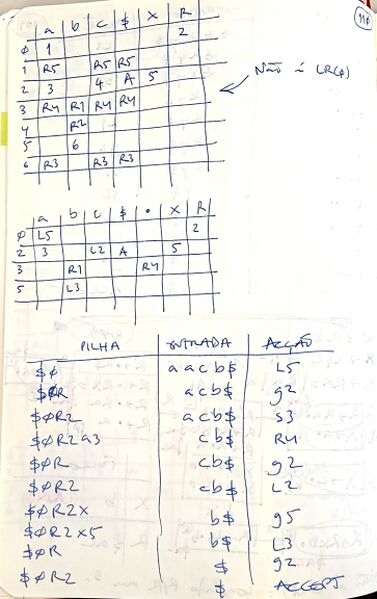 a b c $ X R
0 1 2
1 R5 R5 R5
2 3 4 A 5
3 R4 R1 R4 R4
4 R2
5 6
6 R3 R3 R3
Não é LR(0)
a b c $ • X R
0 L5 2
2 3 L2 A 5
3 R1 R4
5 L3
PILHA ENTRADA ACÇÃO
$0 aacb$ L5
$0R acb$ g2
$0R2 acb$ s3
$0R2a3 cb$ R4
$0R cb$ g2
$0R2 cb$ L2
$0R2X b$ g5
$0R2X5 b$ L3
$0R $ g2
$0R2 $ ACCEPT